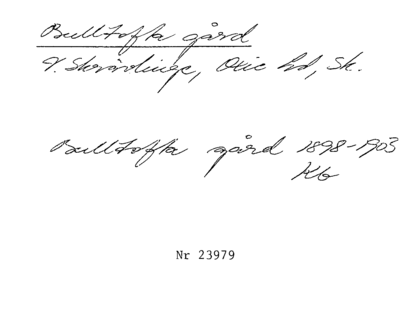 Bulltofta gård
V. Skrävlinge, Oxie hd, Sk.
Bulltofta gård 1898-1903
Kb
Nr 23979